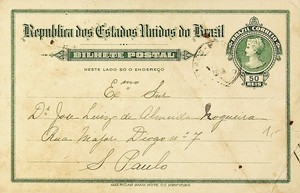 Republica dos Estados Unidos do Brazil
BRAZIL CORREIO
BILHETE POSTAL
50
REIS
NESTE LADO SÓ O ENDEREÇO
Exmo Snr
Dr. José Luiz de Almeida Nogueira
Rua Major Diogo nº 7
S. Paulo
1,-
AMERICAN BANK NOTE CO